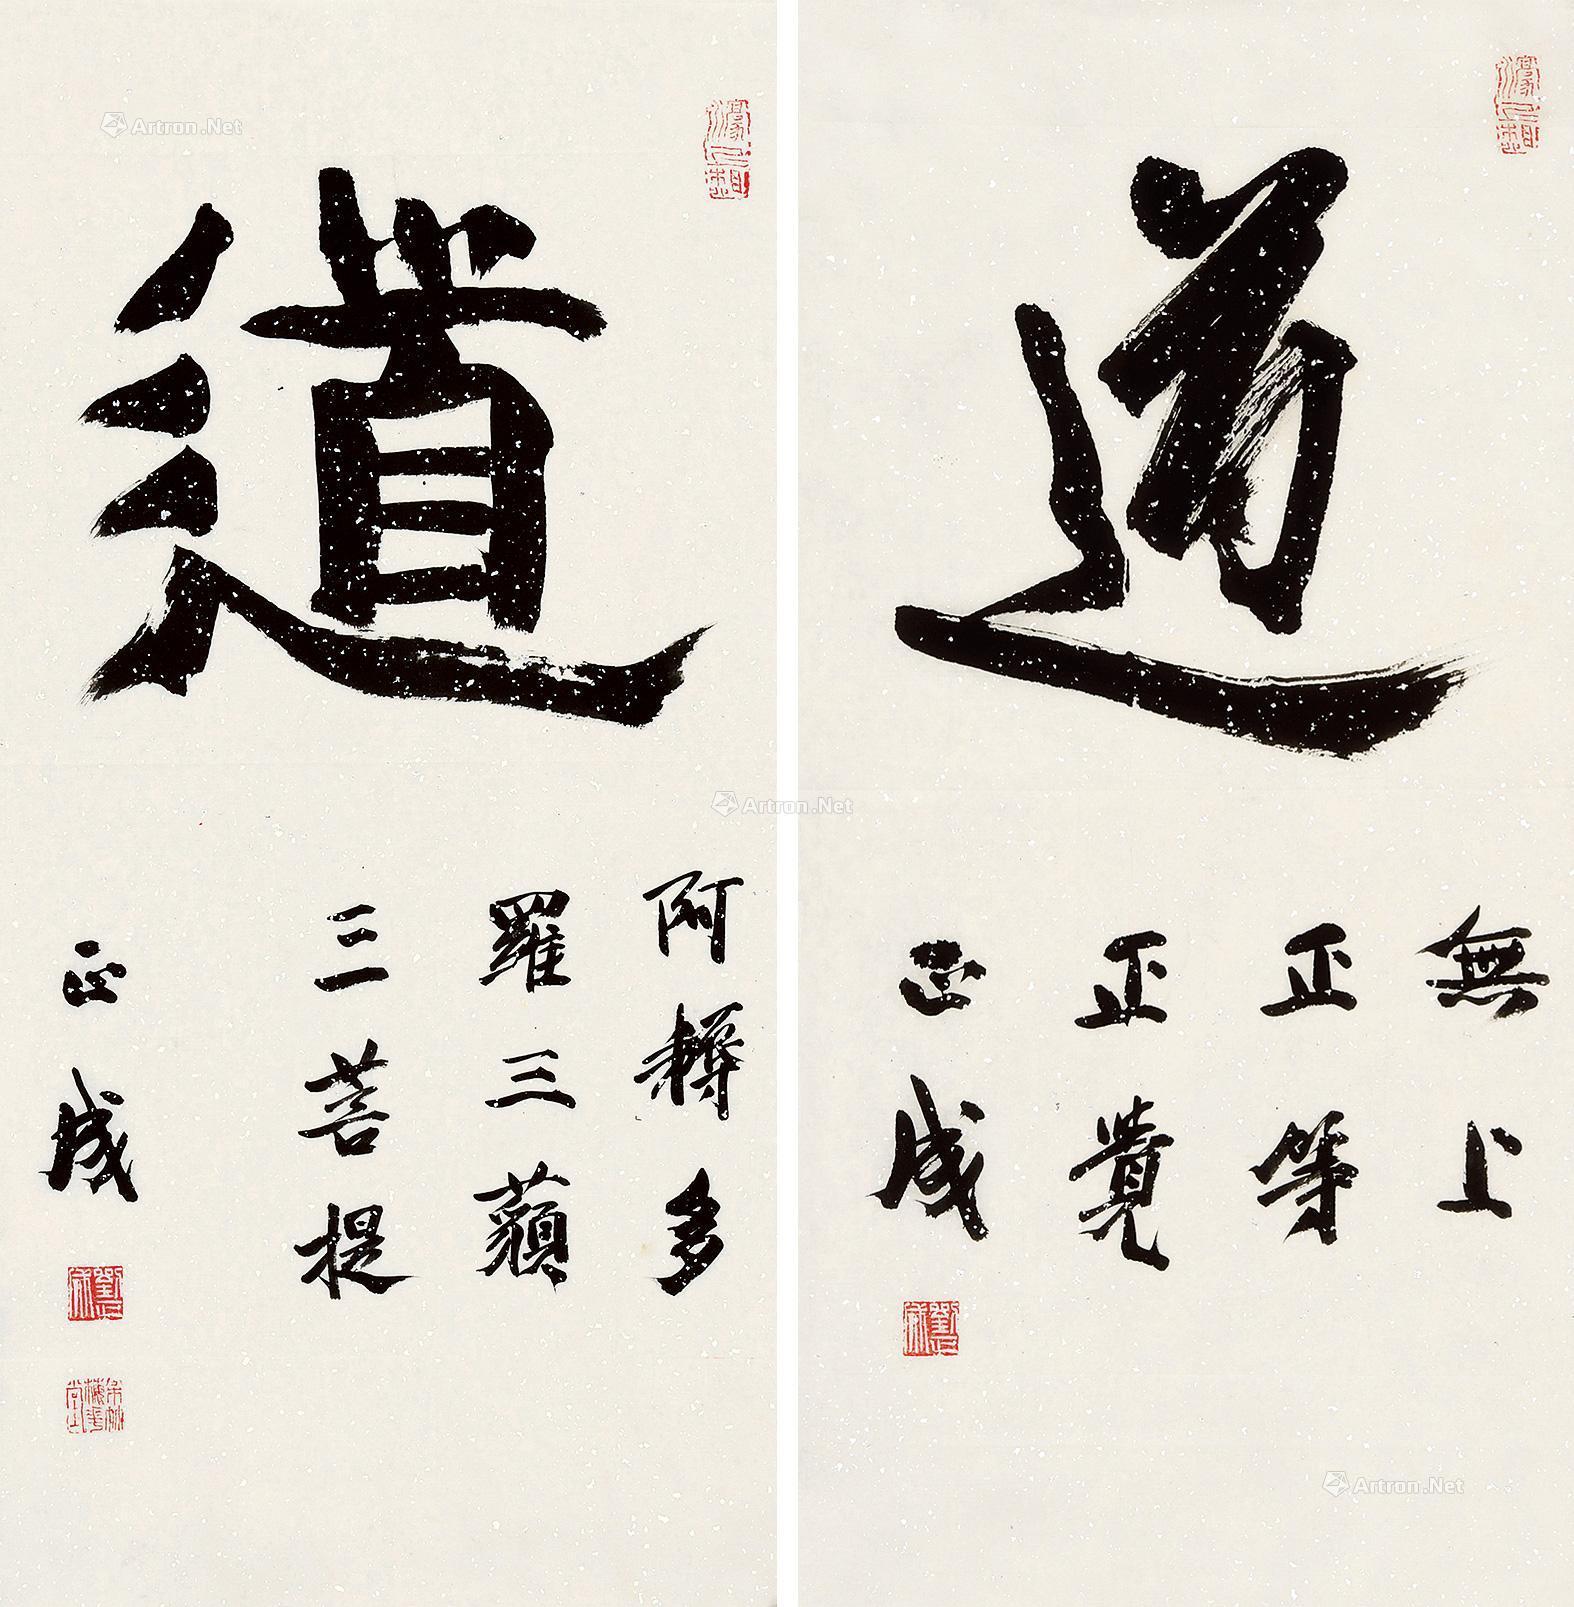 道
無上
正等
正覺
正成
道
阿耨多
羅三藐
三菩提
正成
Artron.Net
Artron.Net
Artron.Net